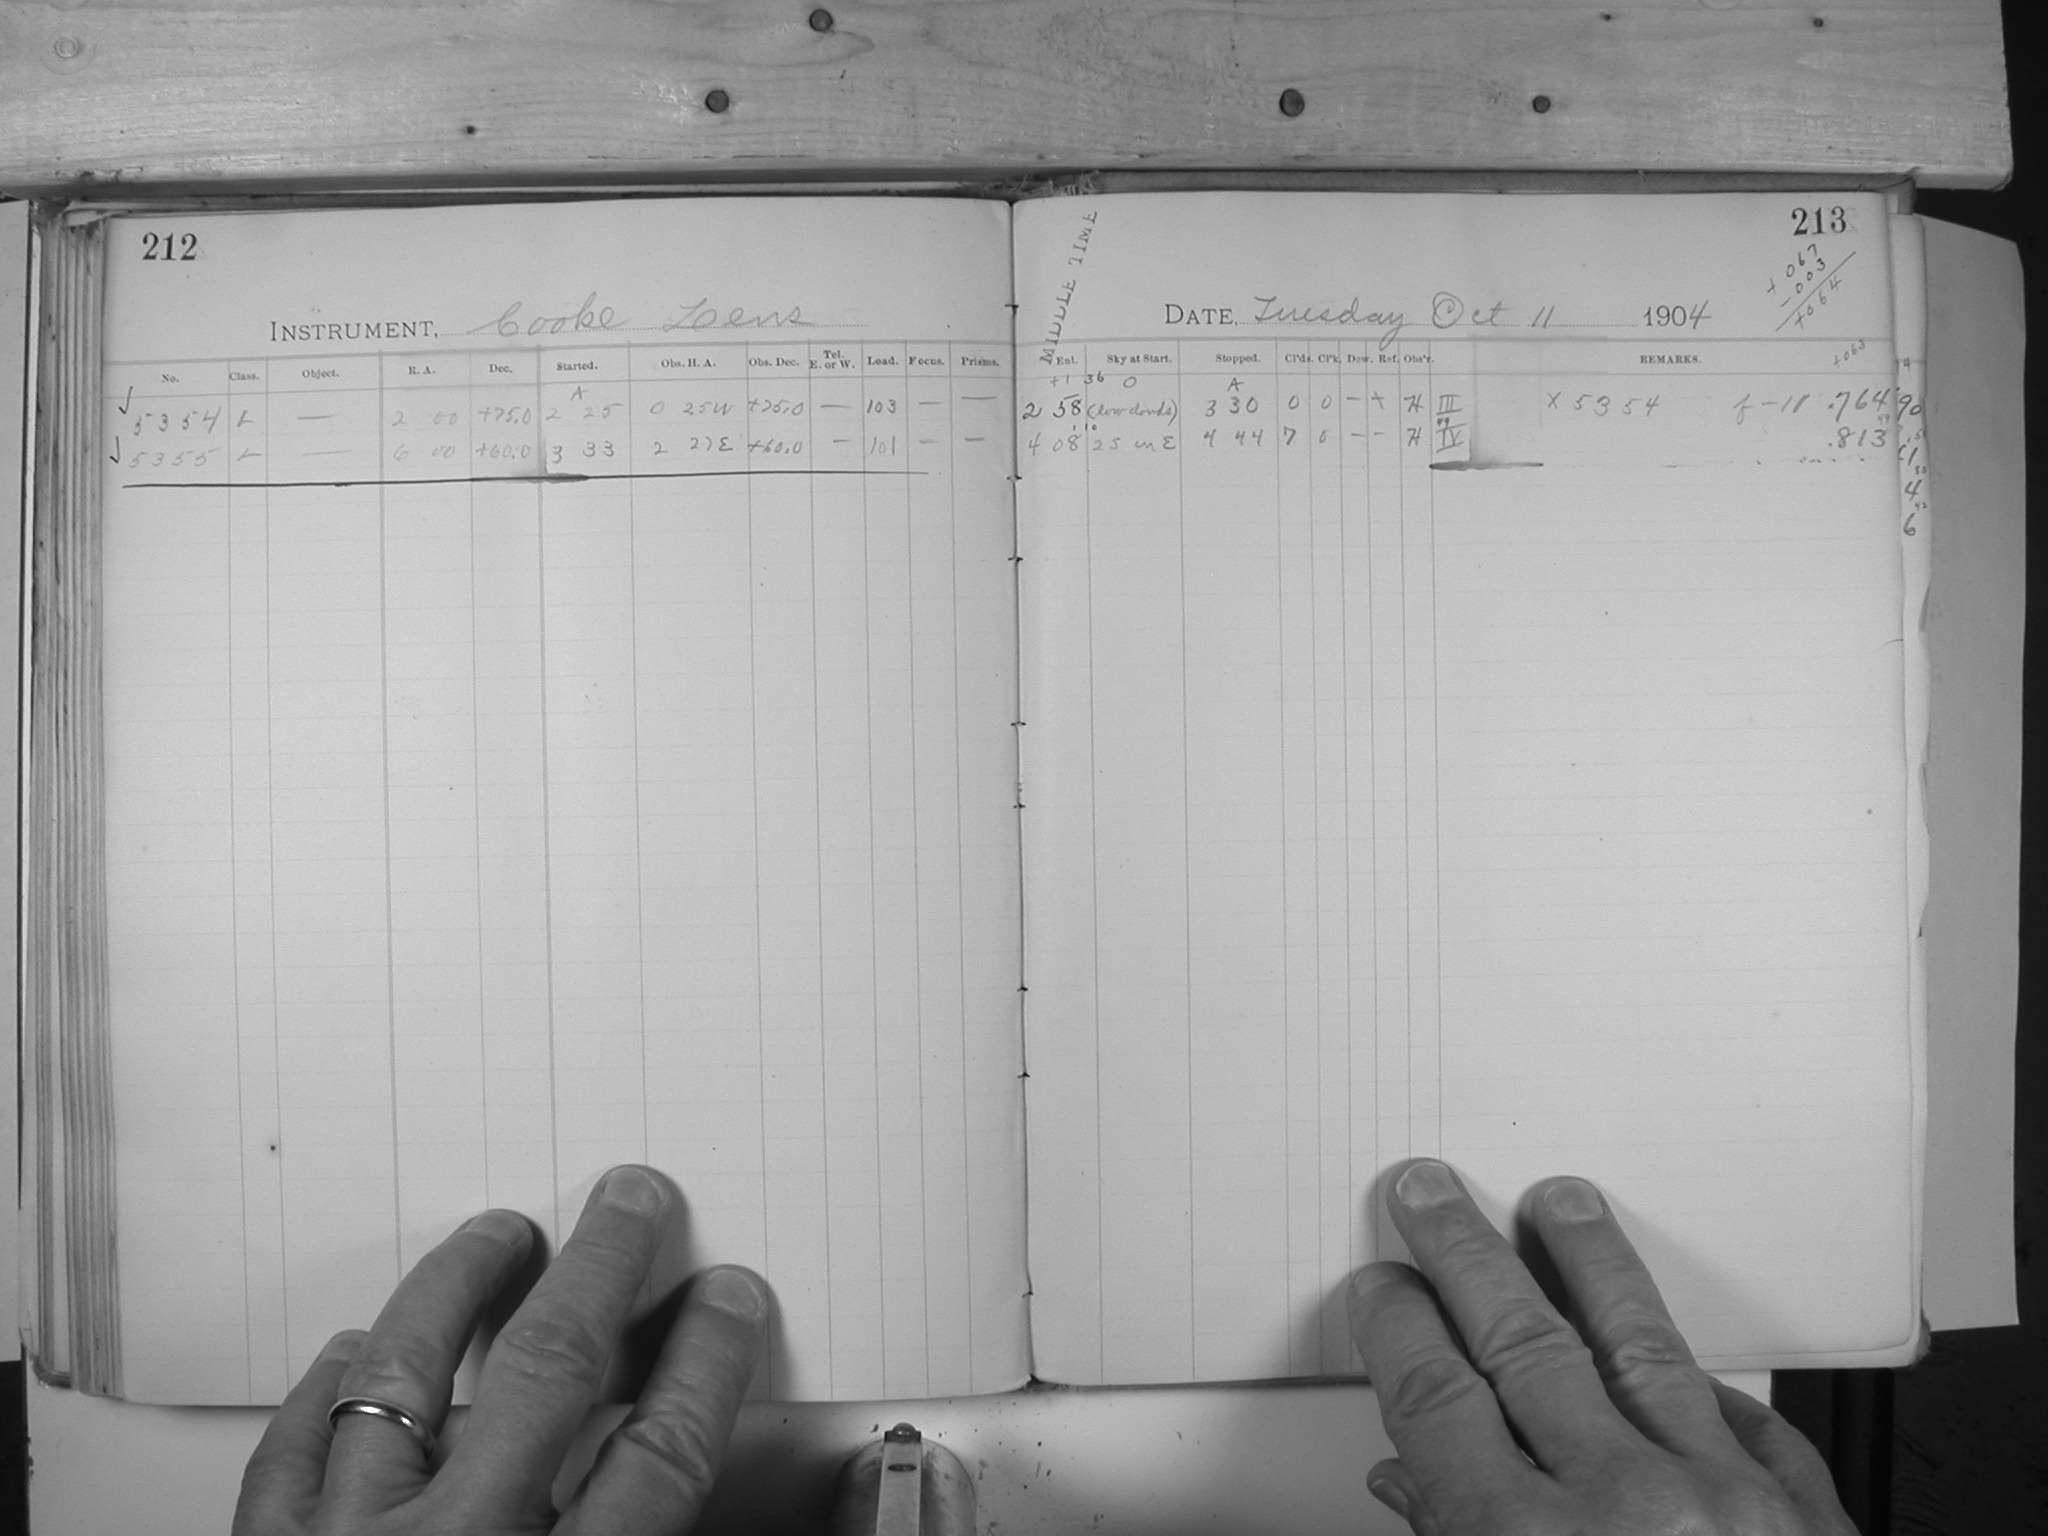 212
INSTRUMENT, Cooke Lens
No. Class. Object. R. A. Dec. Started. Obs. H. A. Obs. Dec. Tel. E. or W. Load. Focus. Prisms.
A
5354 L — 2 00 +75.0 2 25 0 25W +75.0 — 103 — —
5355 L — 6 00 +60.0 3 33 2 27E +60.0 — 101 — —
213
+067
-003
+064
MIDDLE TIME
DATE, Tuesday Oct 11 1904
+063
Ent. Sky at Start. Stopped. Cl'ds. Cl'k. Dew. Ref. Obs'r. REMARKS.
+1 36 0 A
2 58 (low clouds) 3 30 0 0 — + H III X 5354 f-11 .764
4 08 25 in E 4 44 7 0 — — H IV .813
90
4
6